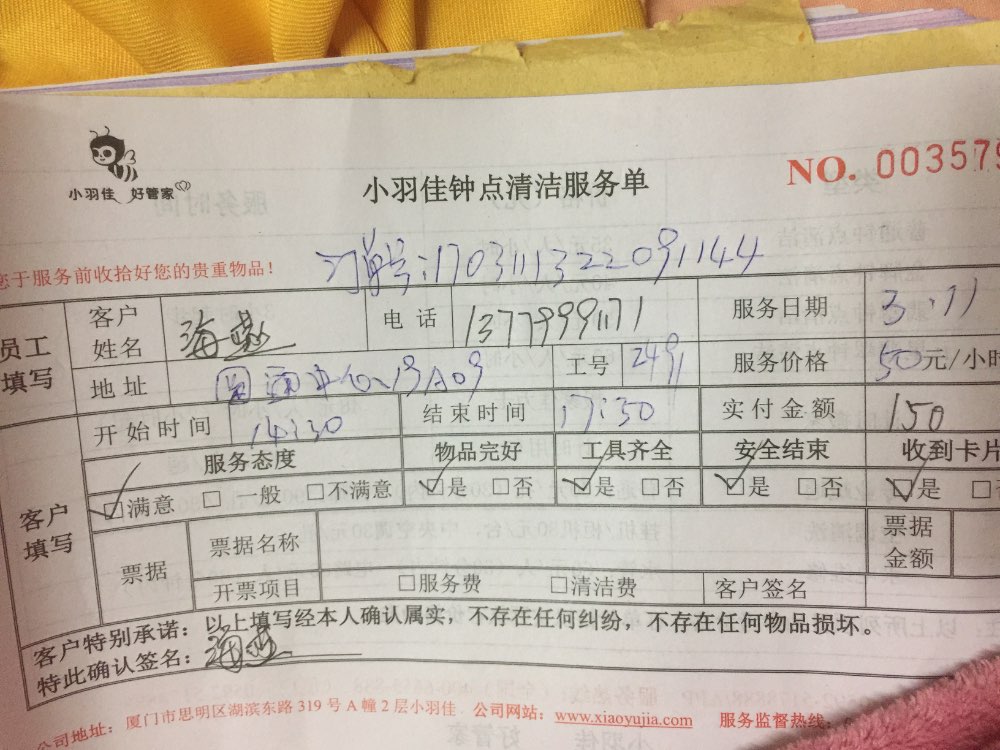 小羽佳 好管家
小羽佳钟点清洁服务单
NO. 003579
您于服务前收拾好您的贵重物品！
订单号:1703111322091144
员工填写
客户姓名 海燕 电话 13779991171 服务日期 3.11
地址 19A09 工号 2491 服务价格 50元/小时
开始时间 14:30 结束时间 17:30 实付金额 150
客户填写
服务态度 物品完好 工具齐全 安全结束 收到卡片
☑满意 □一般 □不满意 ☑是 □否 ☑是 □否 ☑是 □否 ☑是
票据 票据名称 票据金额
开票项目 □服务费 □清洁费 客户签名
客户特别承诺：以上填写经本人确认属实，不存在任何纠纷，不存在任何物品损坏。
特此确认签名：海燕
公司地址：厦门市思明区湖滨东路319号A幢2层小羽佳 公司网站：www.xiaoyujia.com 服务监督热线：